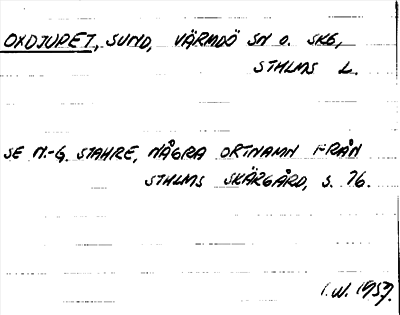 OXDJUPET, SUND, VÄRMDÖ SN O. SKG,
STHLMS L.
SE N.-G. STAHRE, NÅGRA ORTNAMN FRÅN
STHLMS SKÄRGÅRD, S. 76.
I.W. 1959.